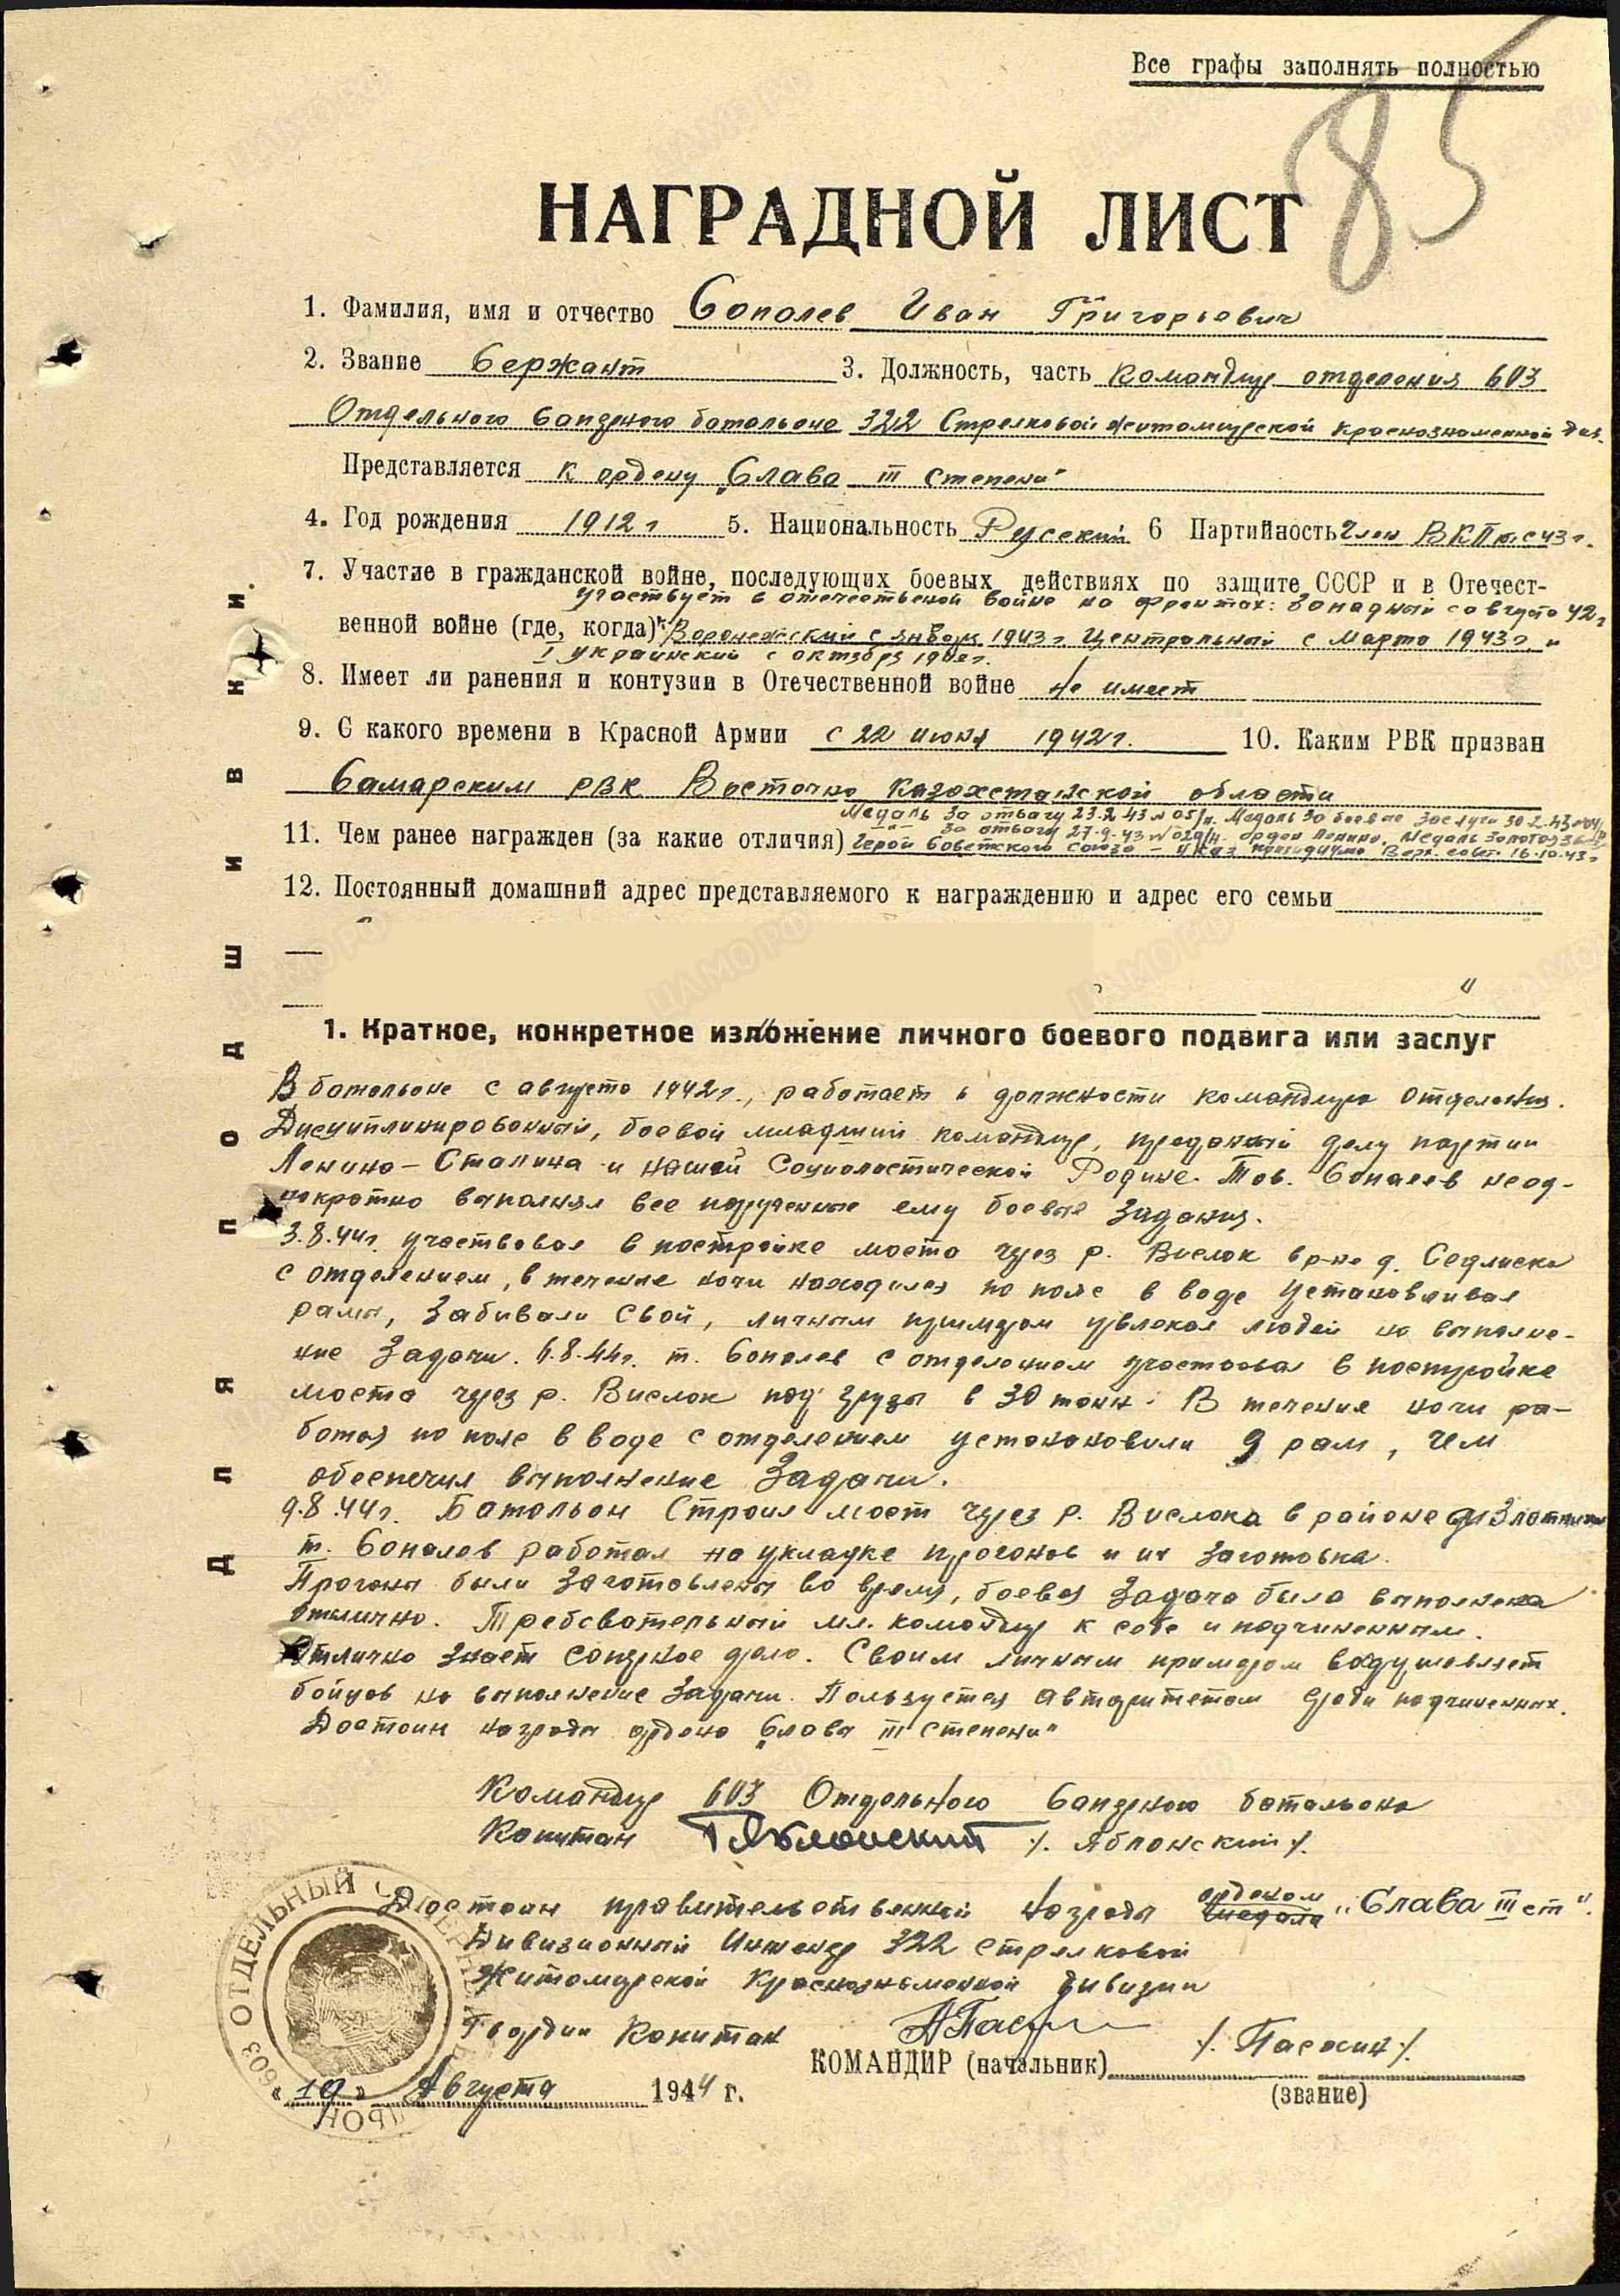 Все графы заполнять полностью
85
НАГРАДНОЙ ЛИСТ
1. Фамилия, имя и отчество Сополев Иван Григорьевич
2. Звание Сержант 3. Должность, часть Командир отделения 603
Отдельного Саперного батальона 322 Стрелковой Житомирской Краснознаменной див.
Представляется к ордену „Слава III степени"
4. Год рождения 1912 г 5. Национальность Русский 6 Партийность Член ВКПб с 43 г.
7. Участие в гражданской войне, последующих боевых действиях по защите СССР и в Отечест-
участвует в отечественной войне на фронтах: Западный с августа 42 г
венной войне (где, когда) Воронежский с января 1943 г. Центральный с марта 1943 г. и
I Украинский с октября
8. Имеет ли ранения и контузии в Отечественной войне Не имеет
9. С какого времени в Красной Армии с 22 июня 1942 г. 10. Каким РВК призван
Самарским РВК Восточно Казахстанской области
Медаль За отвагу 23.2.43 № 05/н. Медаль За боевые заслуги
11. Чем ранее награжден (за какие отличия) За отвагу 27.9.43 № 029/н. орден Ленина, Медаль Золотая звезда
Герой Советского Союза – Указ президиума Верх. совет. 16.10.43 г
12. Постоянный домашний адрес представляемого к награждению и адрес его семьи
1. Краткое, конкретное изложение личного боевого подвига или заслуг
В батальоне с августа 1942 г., работает в должности командира отделения.
Дисциплинированный, боевой младший командир, преданный делу партии
Ленина – Сталина и нашей Социалистической Родине. Тов. Сополев неод-
нократно выполнял все порученные ему боевые задания.
3.8.44 г. участвовал в постройке моста через р. Вислок в р-не д. Седлиска
с отделением, в течение ночи находился по пояс в воде устанавливая
рамы, забивали свои, личным примером увлекая людей на выполне-
ние задачи. 6.8.44 г. т. Сополев с отделением участвовал в постройке
моста через р. Вислок под грузы в 30 тонн. В течения ночи ра-
ботая по пояс в воде с отделением устоноковили 9 рам, чем
обеспечил выполнение задачи.
9.8.44 г. Батальон строил мост через р. Вислока в районе
т. Сополев работал на укладке прогонов и их заготовка.
Прогоны были заготовлены во время, боевая задача была выполнена
отлично. Требовательный мл. командир к себе и подчиненным.
Отлично знает саперное дело. Своим личным примером воодушевляет
бойцов на выполнение задачи. Пользуется авторитетом среди подчиненных.
Достоин награды ордена „Слава III степени"
Командир 603 Отдельного Саперного батальона
Капитан Яблонский /. Яблонский /.
Достоин правительственной награды медали орденом „Слава III ст".
Дивизионный Инженер 322 стрелковой
Житомирской Краснознаменной дивизии
Гвардии Капитан /. Пасохин /.
КОМАНДИР (начальник)
(звание)
„19" Августа 1944 г.
603 ОТДЕЛЬНЫЙ САПЕРНЫЙ БАТАЛЬОН
ДЛЯ ПОДШИВКИ.